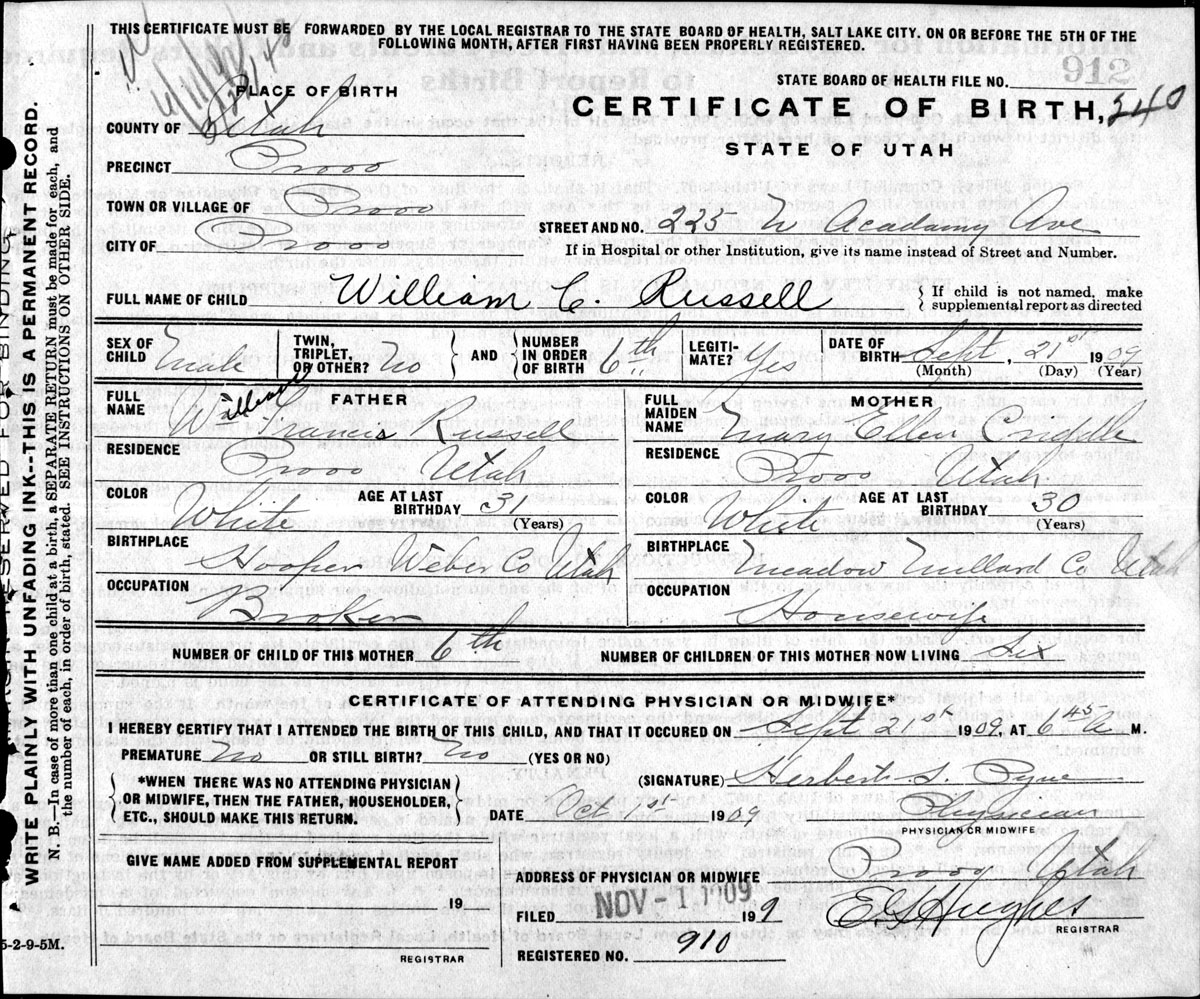 THIS CERTIFICATE MUST BE FORWARDED BY THE LOCAL REGISTRAR TO THE STATE BOARD OF HEALTH, SALT LAKE CITY. ON OR BEFORE THE 5TH OF THE
FOLLOWING MONTH, AFTER FIRST HAVING BEEN PROPERLY REGISTERED.
912
PLACE OF BIRTH
STATE BOARD OF HEALTH FILE NO.
CERTIFICATE OF BIRTH, 240
COUNTY OF Utah
STATE OF UTAH
PRECINCT Provo
TOWN OR VILLAGE OF Provo
STREET AND NO. 225 N Academy Ave
CITY OF Provo
If in Hospital or other Institution, give its name instead of Street and Number.
FULL NAME OF CHILD William C. Russell
If child is not named, make
supplemental report as directed
SEX OF CHILD Male
TWIN, TRIPLET, OR OTHER? No
AND
NUMBER IN ORDER OF BIRTH 6th
LEGITI-MATE? Yes
DATE OF BIRTH Sept, 21st 1909
(Month) (Day) (Year)
FATHER
FULL NAME William Francis Russell
RESIDENCE Provo Utah
COLOR White
AGE AT LAST BIRTHDAY 31
(Years)
BIRTHPLACE Hooper Weber Co Utah
OCCUPATION Broker
MOTHER
FULL MAIDEN NAME Mary Ellen
RESIDENCE Provo Utah
COLOR White
AGE AT LAST BIRTHDAY 30
(Years)
BIRTHPLACE Meadow Millard Co Utah
OCCUPATION Housewife
NUMBER OF CHILD OF THIS MOTHER 6th
NUMBER OF CHILDREN OF THIS MOTHER NOW LIVING Six
CERTIFICATE OF ATTENDING PHYSICIAN OR MIDWIFE*
I HEREBY CERTIFY THAT I ATTENDED THE BIRTH OF THIS CHILD, AND THAT IT OCCURED ON Sept 21st 1909, AT 6 45 a M.
PREMATURE No OR STILL BIRTH? No (YES OR NO)
*WHEN THERE WAS NO ATTENDING PHYSICIAN
OR MIDWIFE, THEN THE FATHER, HOUSEHOLDER,
ETC., SHOULD MAKE THIS RETURN.
(SIGNATURE) Herbert S. Pyne
DATE Oct 1st 1909
Physician
PHYSICIAN OR MIDWIFE
GIVE NAME ADDED FROM SUPPLEMENTAL REPORT
19
REGISTRAR
ADDRESS OF PHYSICIAN OR MIDWIFE Provo Utah
FILED NOV - 1 1909 1909
E G Hughes
REGISTRAR
REGISTERED NO. 910
5-2-9-5M.
MARGIN RESERVED FOR BINDING
WRITE PLAINLY WITH UNFADING INK--THIS IS A PERMANENT RECORD.
N. B.—In case of more than one child at a birth, a SEPARATE RETURN must be made for each, and
the number of each, in order of birth, stated. SEE INSTRUCTIONS ON OTHER SIDE.